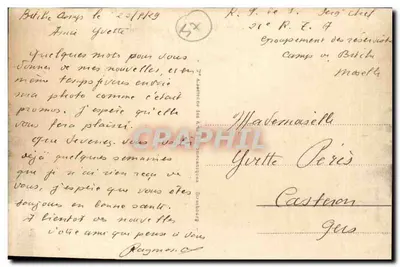 Bitche Camp le
Amie Yvette
Quelques mots pour vous
donner de mes nouvelles, et en
même temps vous envoie
ma photo comme c'était
promis. J'espère qu'elle
vous fera plaisir.
Que devenez vous
déjà quelques semaines
que je n'ai rien reçu de
vous, j'espère que vous êtes
toujours en bonne santé.
A bientôt vos nouvelles
Votre ami qui pense à vous
Raymond
21e R. I. A
Groupement des réservistes
Camp de Bitche
Moselle
CPARAMA
Mademoiselle
Yvette Pérès
Castéron
Gers